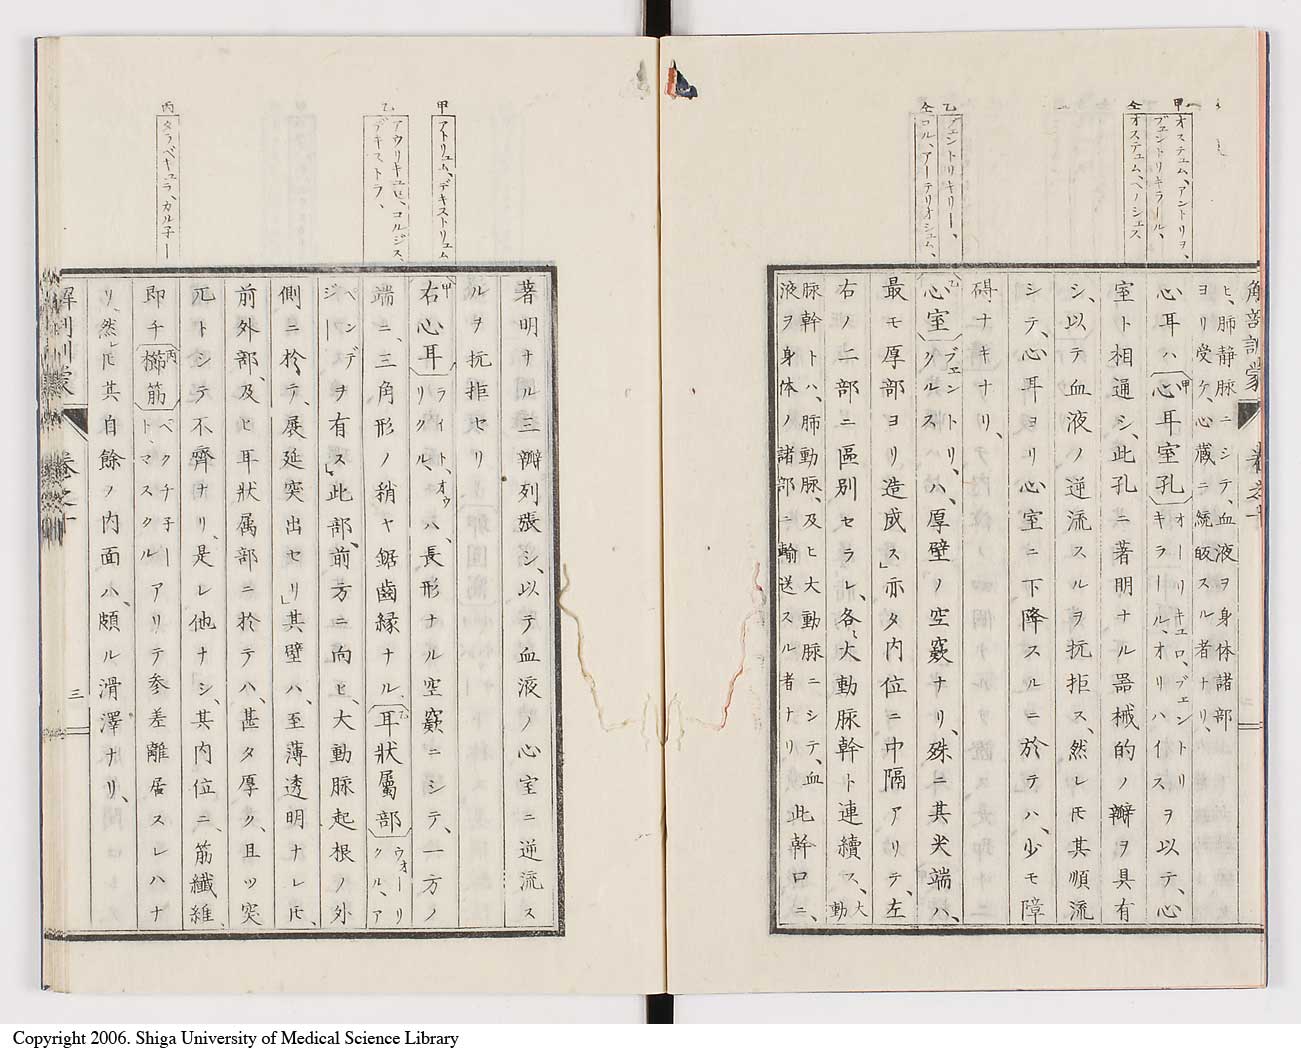 甲 オステュム、アントリヲ、
ヴェントリキラール、
仝 オステュム、ヘノシェス
乙 ヴェントリキリー、
仝 コル、アーテリオシュム、
解剖訓蒙 巻之十
ヒ、肺静脈ニシテ、血液ヲ身体諸部
ヨリ受ケ、心蔵ニ統皈スル者ナリ、
心耳ハ甲心耳室孔オーリキュロ、ヴェントリ
キラール、オリハイスヲ以テ、心
室ト相通シ、此孔ニ著明ナル器械的ノ瓣ヲ具有
シ、以テ血液ノ逆流スルヲ抗拒ス、然レ𪜈其順流
シテ、心耳ヨリ心室ニ下降スルニ於テハ、少モ障
碍ナキナリ、
乙心室ヴェントリ
クルスハ、厚壁ノ空竅ナリ、殊ニ其尖端ハ、
最モ厚部ヨリ造成ス」亦タ内位ニ中隔アリテ、左
右ノ二部ニ區別セラレ、各〻大動脈幹ト連續ス、大動
脈幹トハ、肺動脈、及ヒ大動脈ニシテ、血
液ヲ身体ノ諸部ニ輸送スル者ナリ此幹口ニ、
甲 アトリュム、デキストリュム
乙 アウリキュヒ、コルジス、
デキストラ、
丙 タラベキュラ、カル子ー
著明ナル三瓣列張シ、以テ血液ノ心室ニ逆流ス
ルヲ抗拒セリ
甲右心耳ライト、オウ
リクルハ、長形ナル空竅ニシテ、一方ノ
端ニ、三角形ノ稍ヤ鋸齒縁ナル、乙耳状屬部ウォーリ
クル、ア
ペンデ
ジーヲ有ス」此部、前方ニ向ヒ、大動脈起根ノ外
側ニ於テ、展延突出セリ」其壁ハ、至薄透明ナレ𪜈、
前外部、及ヒ耳状属部ニ於テハ、甚タ厚ク、且ツ突
兀トシテ不齊ナリ、是レ他ナシ、其内位ニ、筋纖維、
即チ丙櫛筋ベクチ子ー
ト、マスクルアリテ参差離居スレハナ
リ、然レ𪜈其自餘ノ内面ハ、頗ル滑澤ナリ、
解剖訓蒙 巻之十 三
Copyright 2006. Shiga University of Medical Science Library